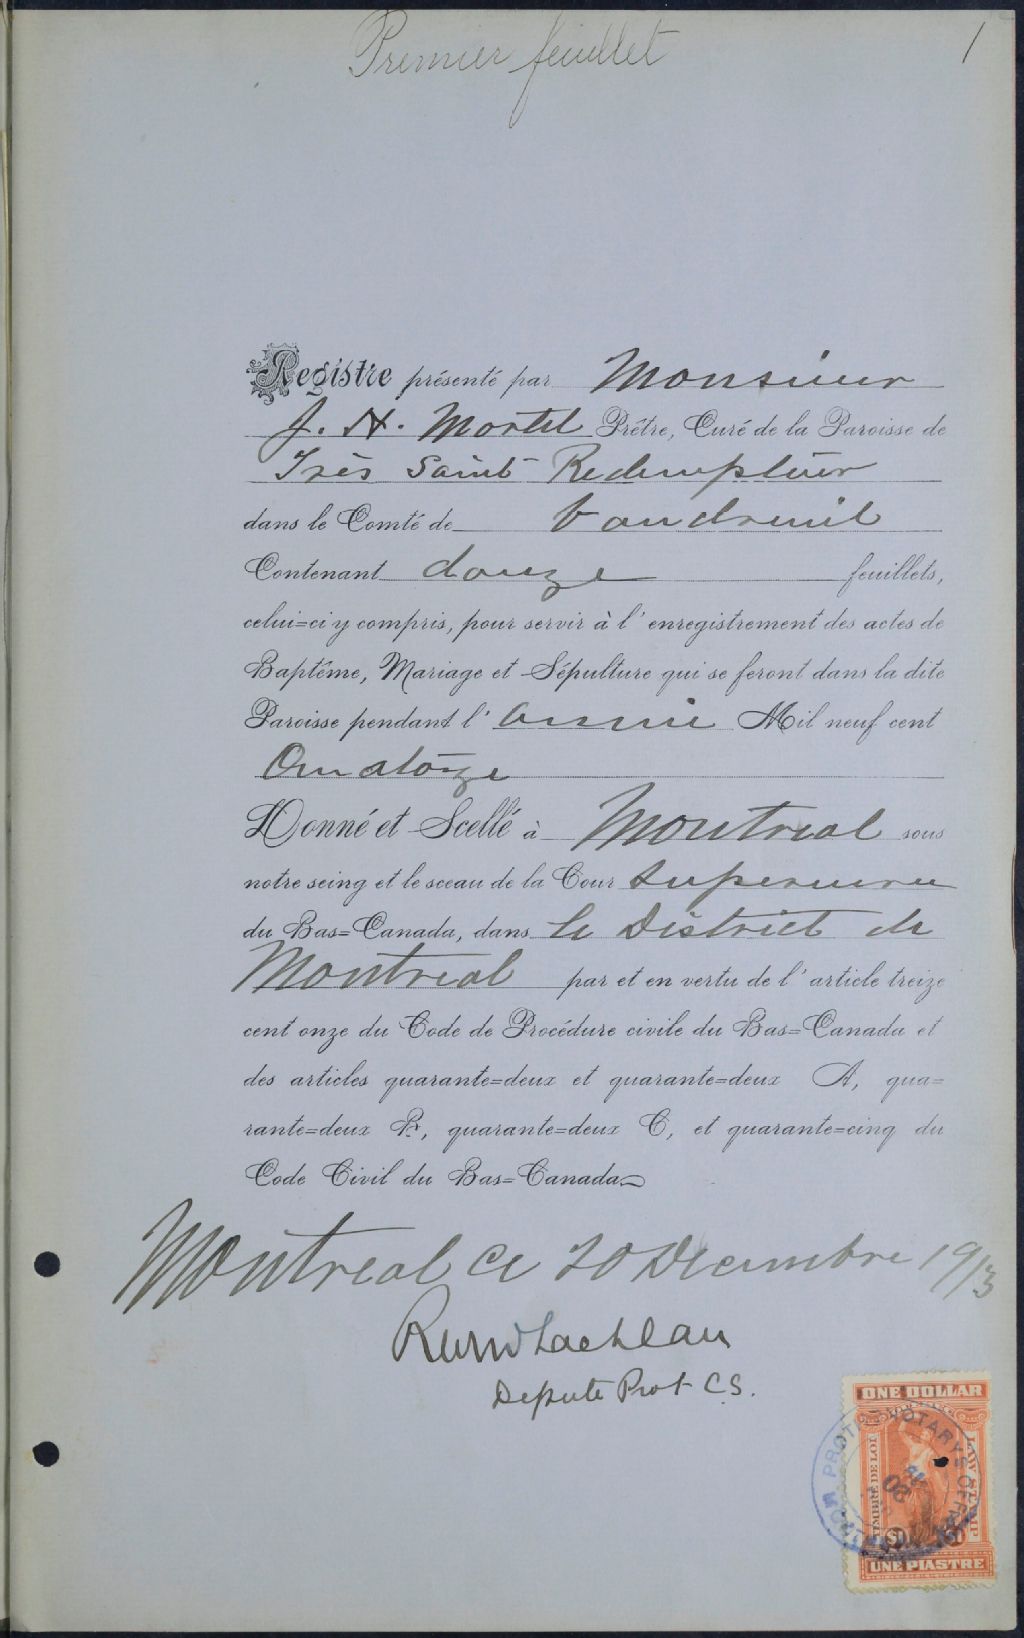 Premier feuillet
1
Registre présenté par Monsieur
J. N. Martel Prêtre, Curé de la Paroisse de
Très Saint Redempteur
dans le Comté de Vaudreuil
Contenant douze feuillets,
celui=ci y compris, pour servir à l'enregistrement des actes de
Baptême, Mariage et Sépulture qui se feront dans la dite
Paroisse pendant l'année Mil neuf cent
Quatorze
Donné et Scellé à Montreal sous
notre seing et le sceau de la Cour Superieure
du Bas=Canada, dans le District de
Montreal par et en vertu de l'article treize
cent onze du Code de Procédure civile du Bas=Canada et
des articles quarante=deux et quarante=deux A, qua=
rante=deux B, quarante=deux C, et quarante=cinq du
Code Civil du Bas=Canada
Montreal ce 20 Decembre 1913
Lachlan
Depute Prot C.S.
ONE DOLLAR
TIMBRE DE LOI
LAW STAMP
UNE PIASTRE